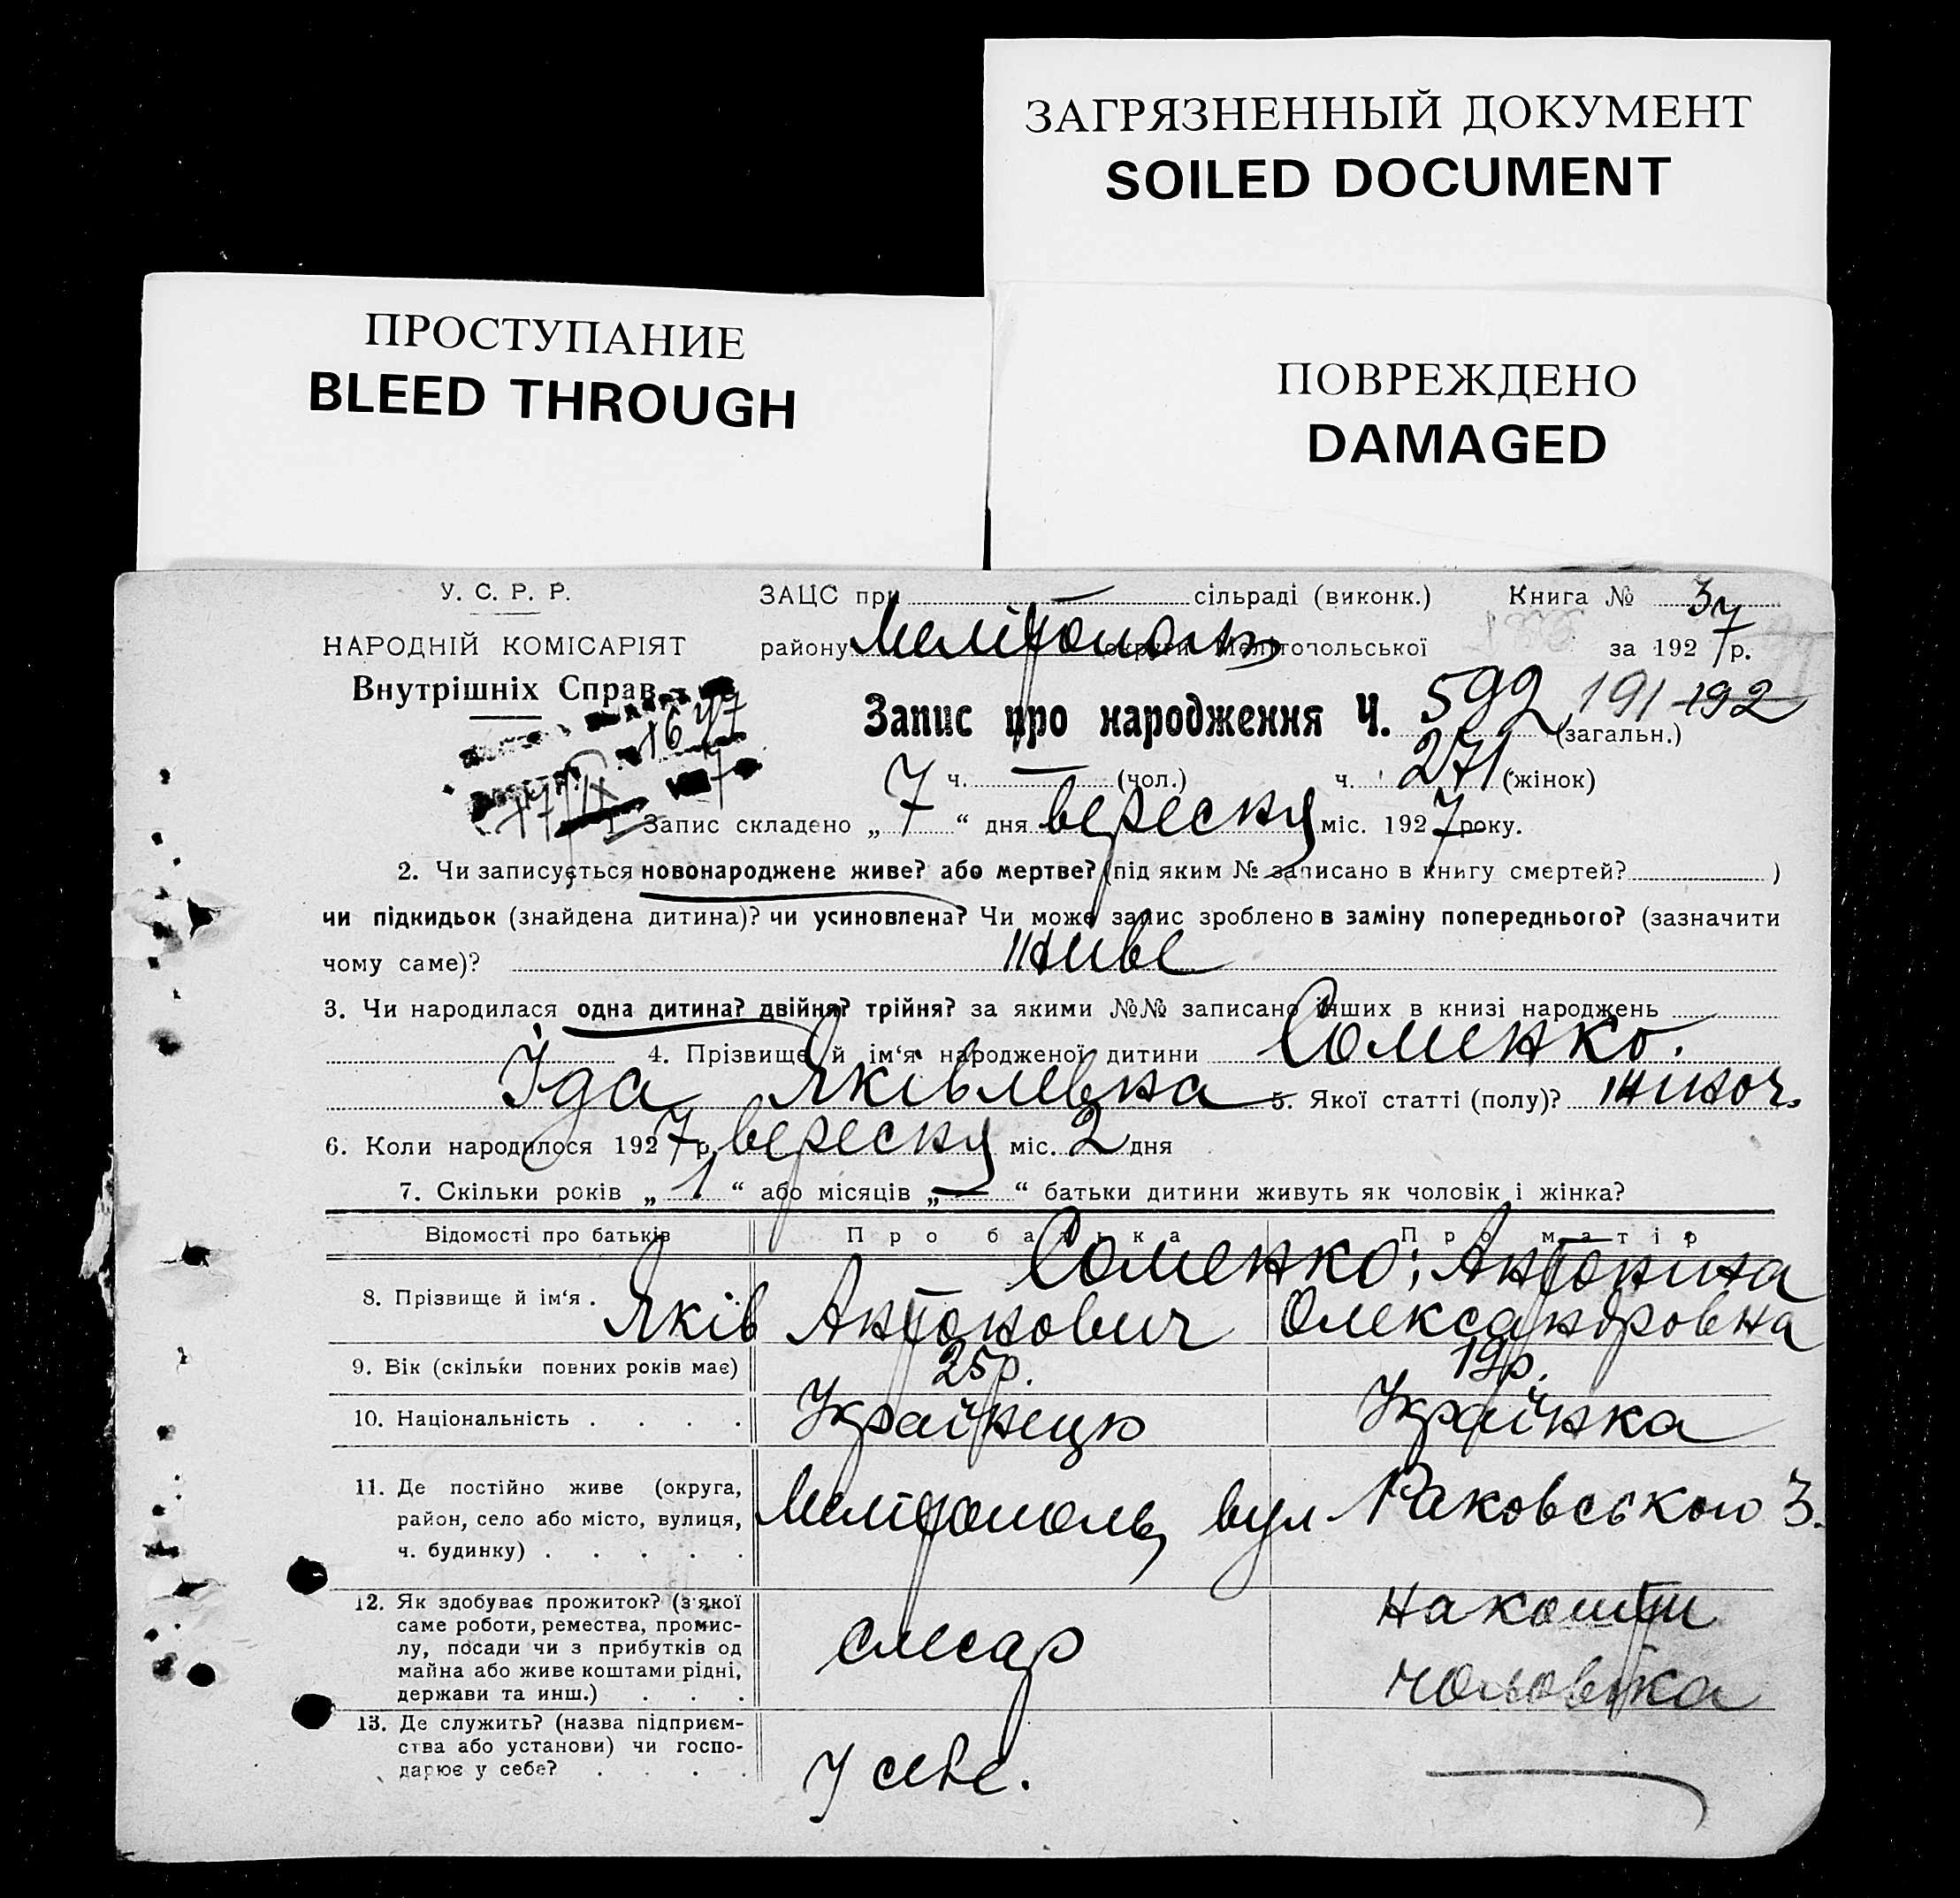 ЗАГРЯЗНЕННЫЙ ДОКУМЕНТ
SOILED DOCUMENT
ПРОСТУПАНИЕ
BLEED THROUGH
ПОВРЕЖДЕНО
DAMAGED
У. С. Р. Р.
НАРОДНІЙ КОМІСАРІЯТ
Внутрішніх Справ
ЗАЦС при — сільраді (виконк.) Книга № 3
району Мелітополь округи Мелітопольської за 1927 р.
Запис про народження Ч. 592 191 192
(загальн.)
ч. — (чол.) ч. 271 (жінок)
1647
17/IX 7
1. Запис складено „ 7 “ дня вересня міс. 1927 року.
2. Чи записується новонароджене живе? або мертве? (під яким № записано в книгу смертей? )
чи підкидьок (знайдена дитина)? чи усиновлена? Чи може запис зроблено в заміну попереднього? (зазначити
чому саме)? живе
3. Чи народилася одна дитина? двійня? трійня? за якими №№ записано інших в книзі народжень
4. Прізвище й ім‘я народженої дитини Соменко.
Іда Яківлевна 5. Якої статті (полу)? жіноч.
6. Коли народилося 1927 р. вересня міс. 2 дня
7. Скільки років „ 1 “ або місяців „ — “ батьки дитини живуть як чоловік і жінка?
Відомості про батьків Про батька Про матір
8. Прізвище й ім‘я . Соменко; Антонина
Яків Антонович Олександровна
9. Вік (скільки повних років має) 25р. 19р.
10. Національність . . . . Українець Українка
11. Де постійно живе (округа,
район, село або місто, вулиця,
ч. будинку) . . . . .
Мелітополь, вул Раковського 3.
12. Як здобуває прожиток? (з якої
саме роботи, ремества, промис-
лу, посади чи з прибутків од
майна або живе коштами рідні,
держави та инш.) . . .
слесар
на кошти
чоловіка
13. Де служить? (назва підприєм-
ства або установи) чи госпо-
дарює у себе? . . . .
У себе.